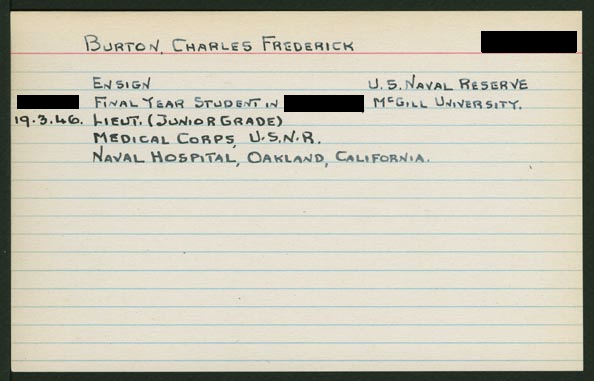 BURTON, CHARLES FREDERICK
ENSIGN U.S. NAVAL RESERVE
FINAL YEAR STUDENT IN McGILL UNIVERSITY.
19.3.46. LIEUT. (JUNIOR GRADE)
MEDICAL CORPS, U.S.N.R.
NAVAL HOSPITAL, OAKLAND, CALIFORNIA.